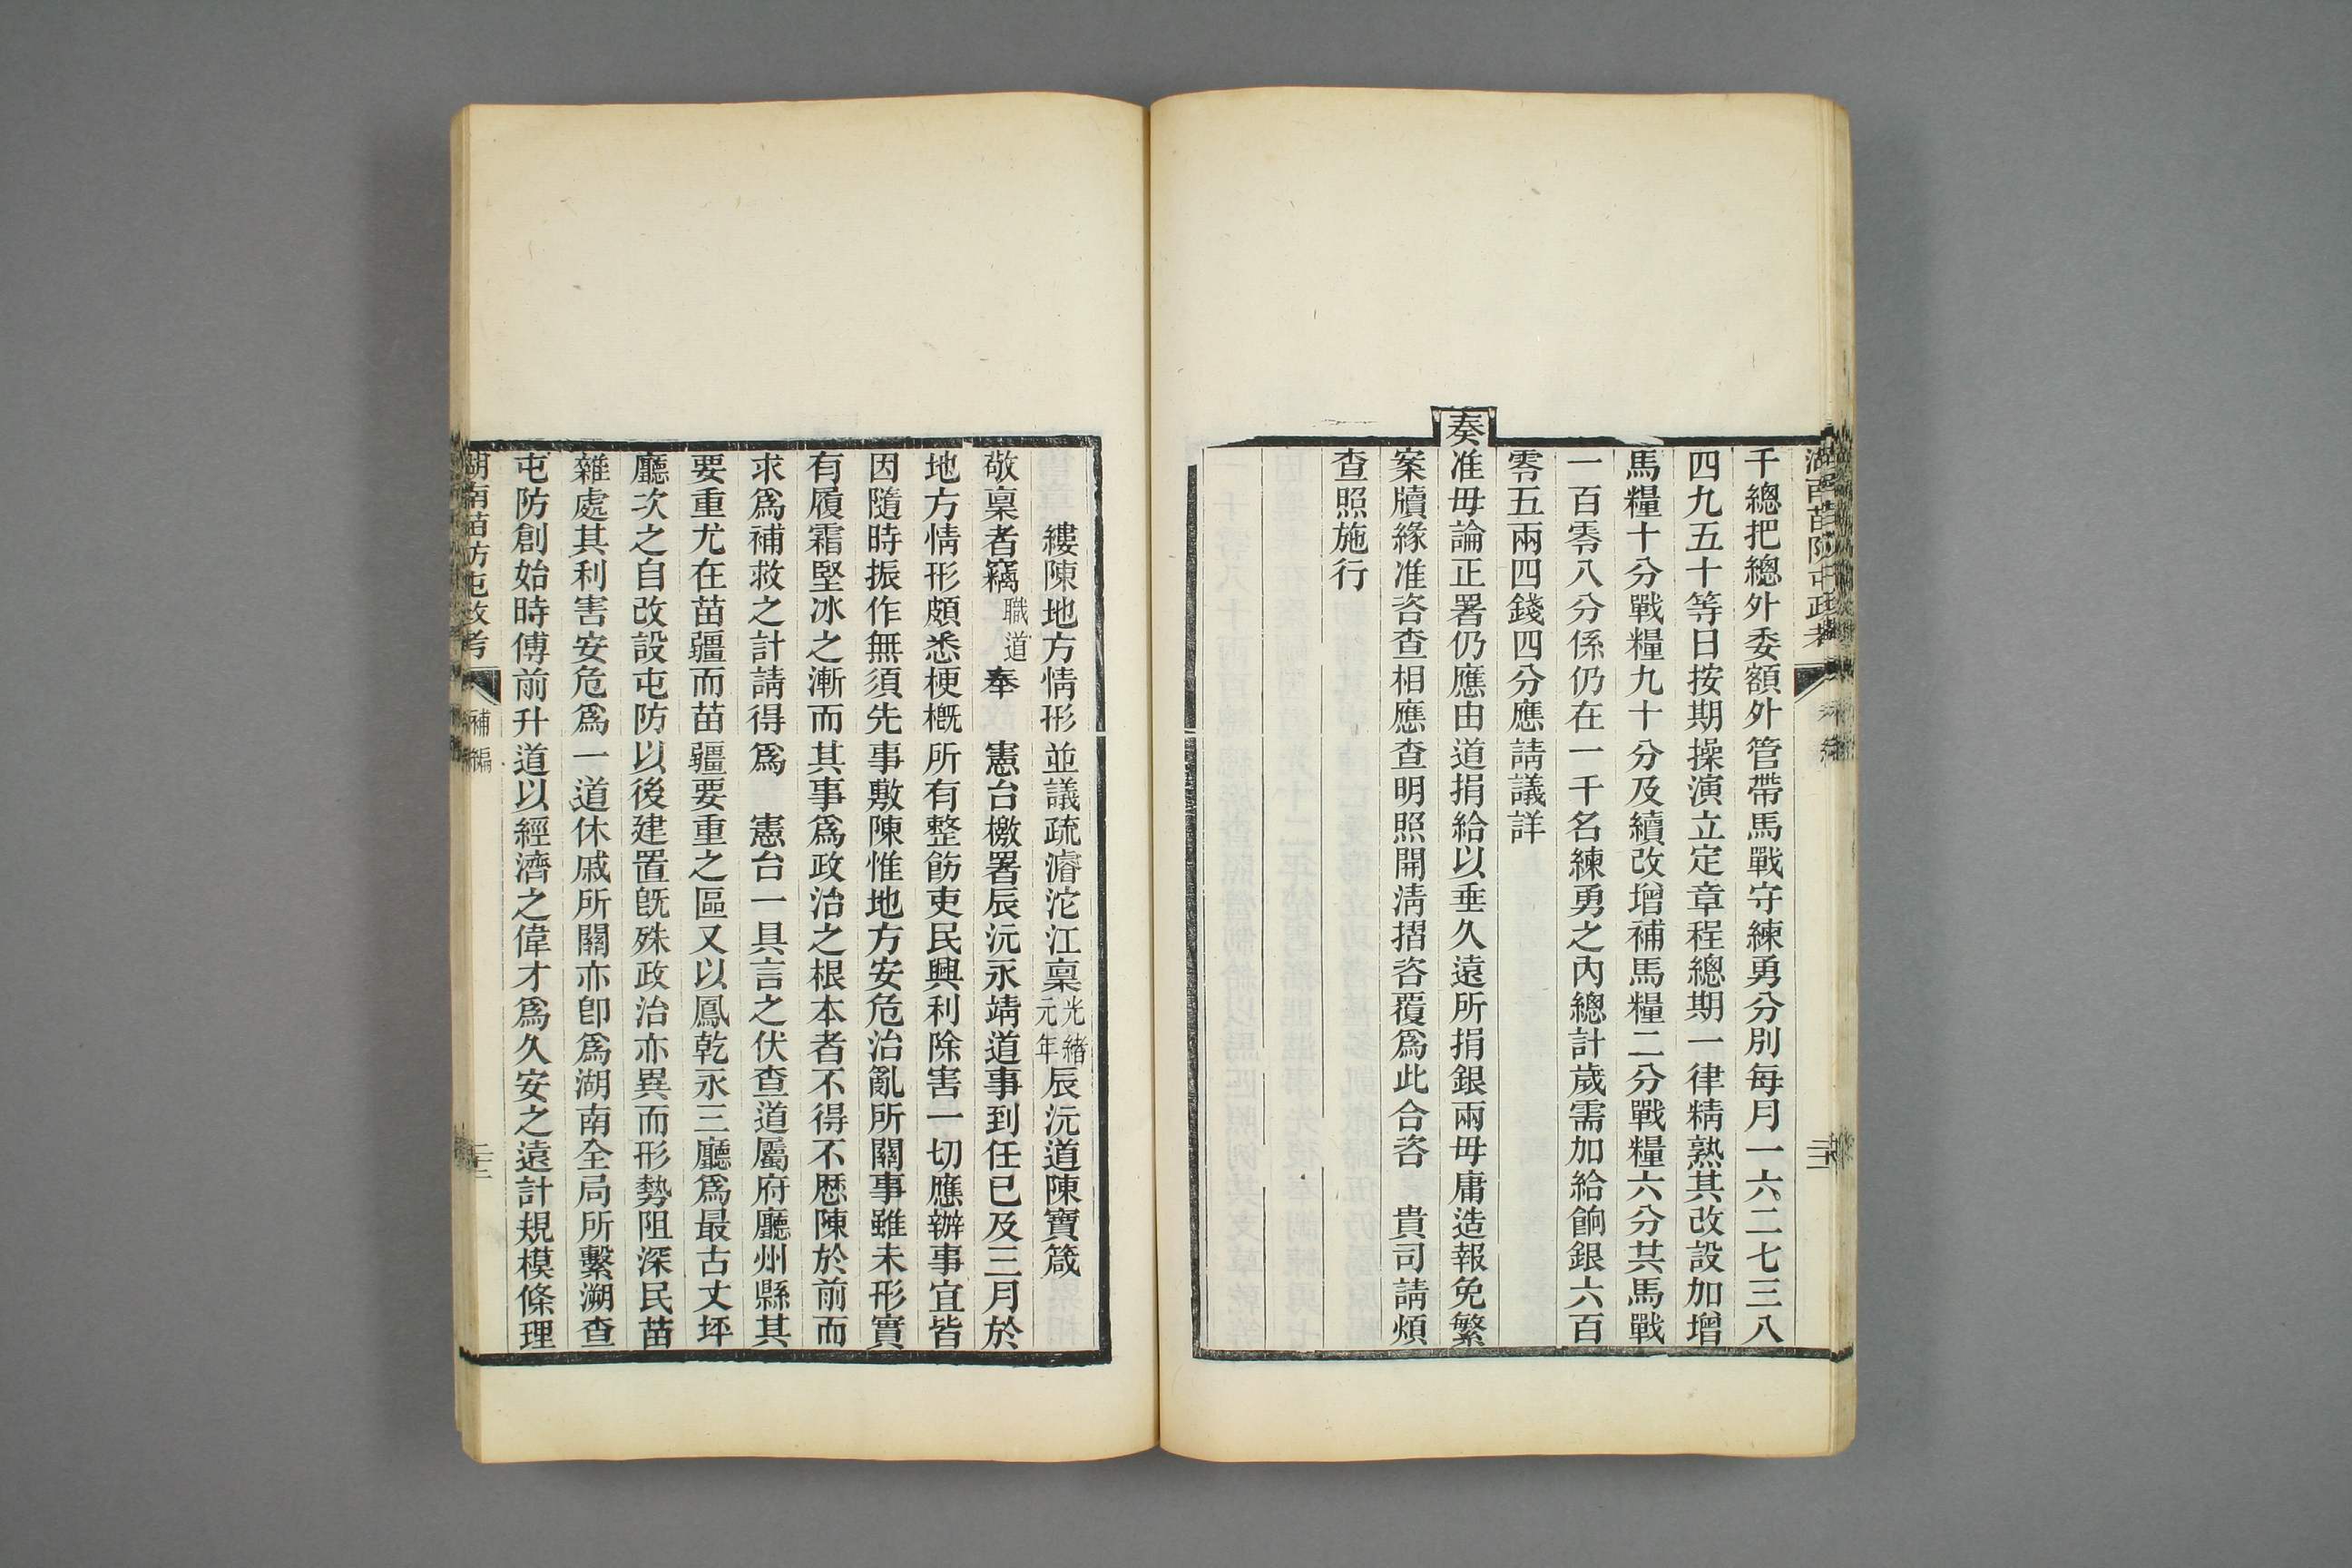 湖南苗防屯政考 補編
千總把總外委額外管帶馬戰守練勇分別每月一六二七三八
四九五十等日按期操演立定章程總期一律精熟其改設加增
馬糧十分戰糧九十分及續改增補馬糧二分戰糧六分共馬戰
一百零八分係仍在一千名練勇之內總計歲需加給餉銀六百
零五兩四錢四分應請議詳
奏准毋論正署仍應由道捐給以垂久遠所捐銀兩毋庸造報免繁
案牘緣准咨查相應查明照開淸摺咨覆爲此合咨 貴司請煩
查照施行
縷陳地方情形並議疏濬沱江稟光緖元年辰沅道陳寶箴
敬稟者竊職道奉 憲台檄署辰沅永靖道事到任已及三月於
地方情形頗悉梗槪所有整飭吏民興利除害一切應辦事宜皆
因隨時振作無須先事敷陳惟地方安危治亂所關事雖未形實
有履霜堅冰之漸而其事爲政治之根本者不得不歷陳於前而
求爲補救之計請得爲 憲台一具言之伏查道屬府廳州縣其
要重尤在苗疆而苗疆要重之區又以鳳乾永三廳爲最古丈坪
廳次之自改設屯防以後建置旣殊政治亦異而形勢阻深民苗
雜處其利害安危爲一道休戚所關亦卽爲湖南全局所繫溯查
屯防創始時傅前升道以經濟之偉才爲久安之遠計規模條理
湖南苗防屯政考 補編